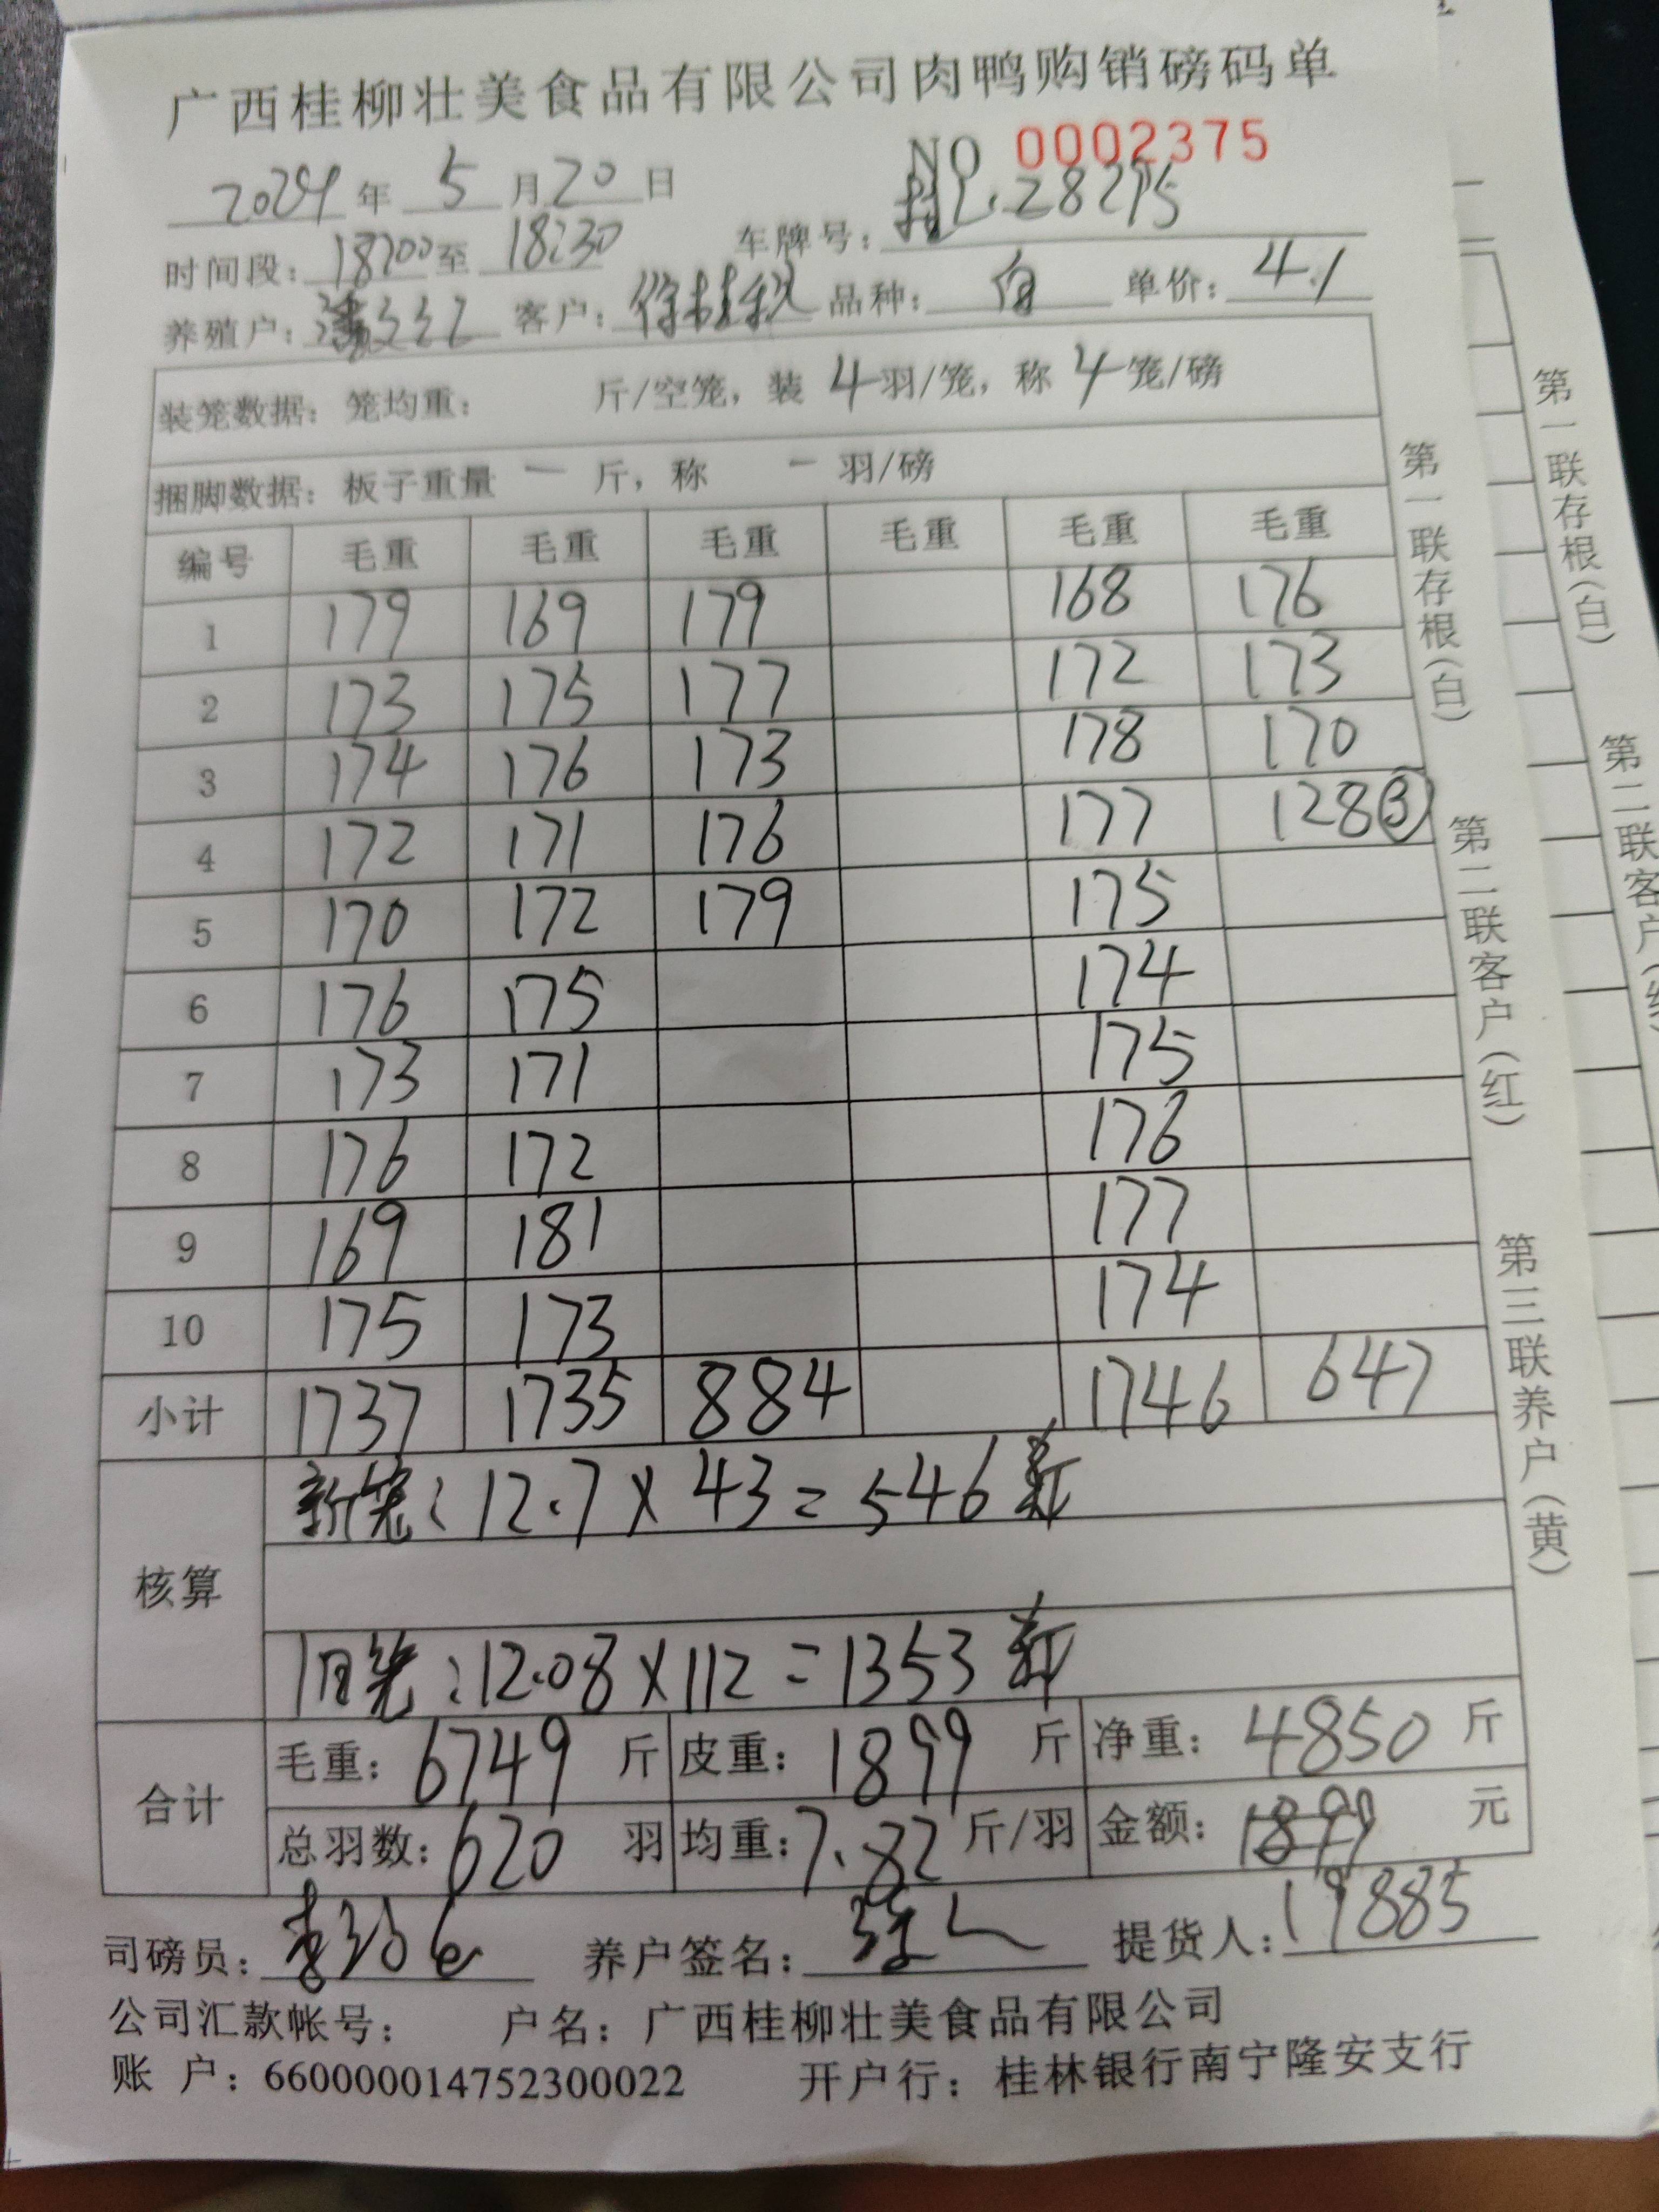 广西桂柳壮美食品有限公司肉鸭购销磅码单
NO 0002375
2024年 5 月 20 日
时间段：18:00至 18:30 车牌号：28275
养殖户： 客户：徐桂秋 品种：白 单价：4.1
装笼数据：笼均重： 斤/空笼，装 4 羽/笼，称 4 笼/磅
捆脚数据：板子重量 一 斤，称 一 羽/磅
编号 毛重 毛重 毛重 毛重 毛重 毛重
1 179 169 179 168 176
2 173 175 177 172 173
3 174 176 173 178 170
4 172 171 176 177 128③
5 170 172 179 175
6 176 175 174
7 173 171 175
8 176 172 176
9 169 181 177
10 175 173 174
小计 1737 1735 884 1746 647
核算
新笼：12.7×43=546
旧笼：12.08×112=1353
合计
毛重：6749 斤 皮重：1899 斤 净重：4850 斤
总羽数：620 羽 均重：7.82 斤/羽 金额：1899 元
司磅员： 养户签名： 提货人：19885
公司汇款帐号： 户名：广西桂柳壮美食品有限公司
账 户：660000014752300022 开户行：桂林银行南宁隆安支行
第一联存根（白） 第二联客户（红） 第三联养户（黄）
第一联存根（白）
第二联客户（红